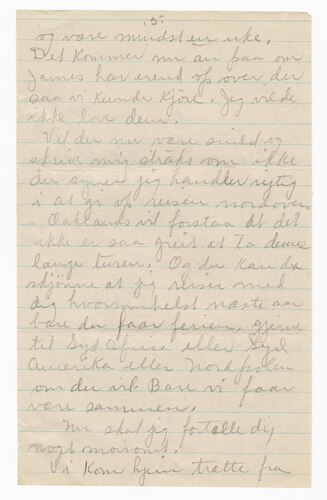 5
og være mindst en uke.
Det kommer nu an paa om
James har erend op over der
saa vi kunde kjöre. Jeg vilde
ikke love dem.
Vil du nu være snild og
skrive mig straks om ikke
du synes jeg handler rigtig
i at gi op reisen nordover.
Oaklands vil forstaa at det
ikke er saa greit at ta denne
lange turen. Og du kan da
skjönne at jeg reiser med
dig hvorsomhelst næste aar
bare du faar ferien, gjerne
til Syd Africa eller Syd
Amerika eller Nordpolen
om du vil. Bare vi faar
være sammen.
Nu skal jeg fortælle dig
nogt morsomt.
Vi kom hjem trætte fra